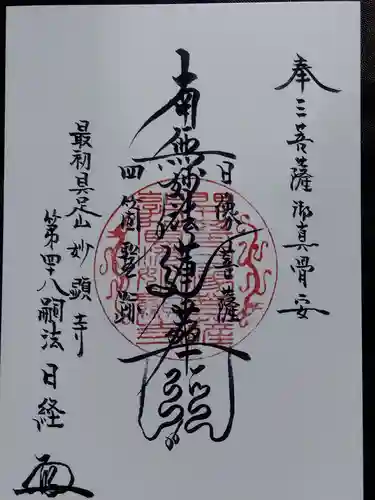 奉三菩薩御真骨安
南無妙法蓮華経
日像菩薩
四海歡
最初具足山妙顕寺
第四十八嗣法日経